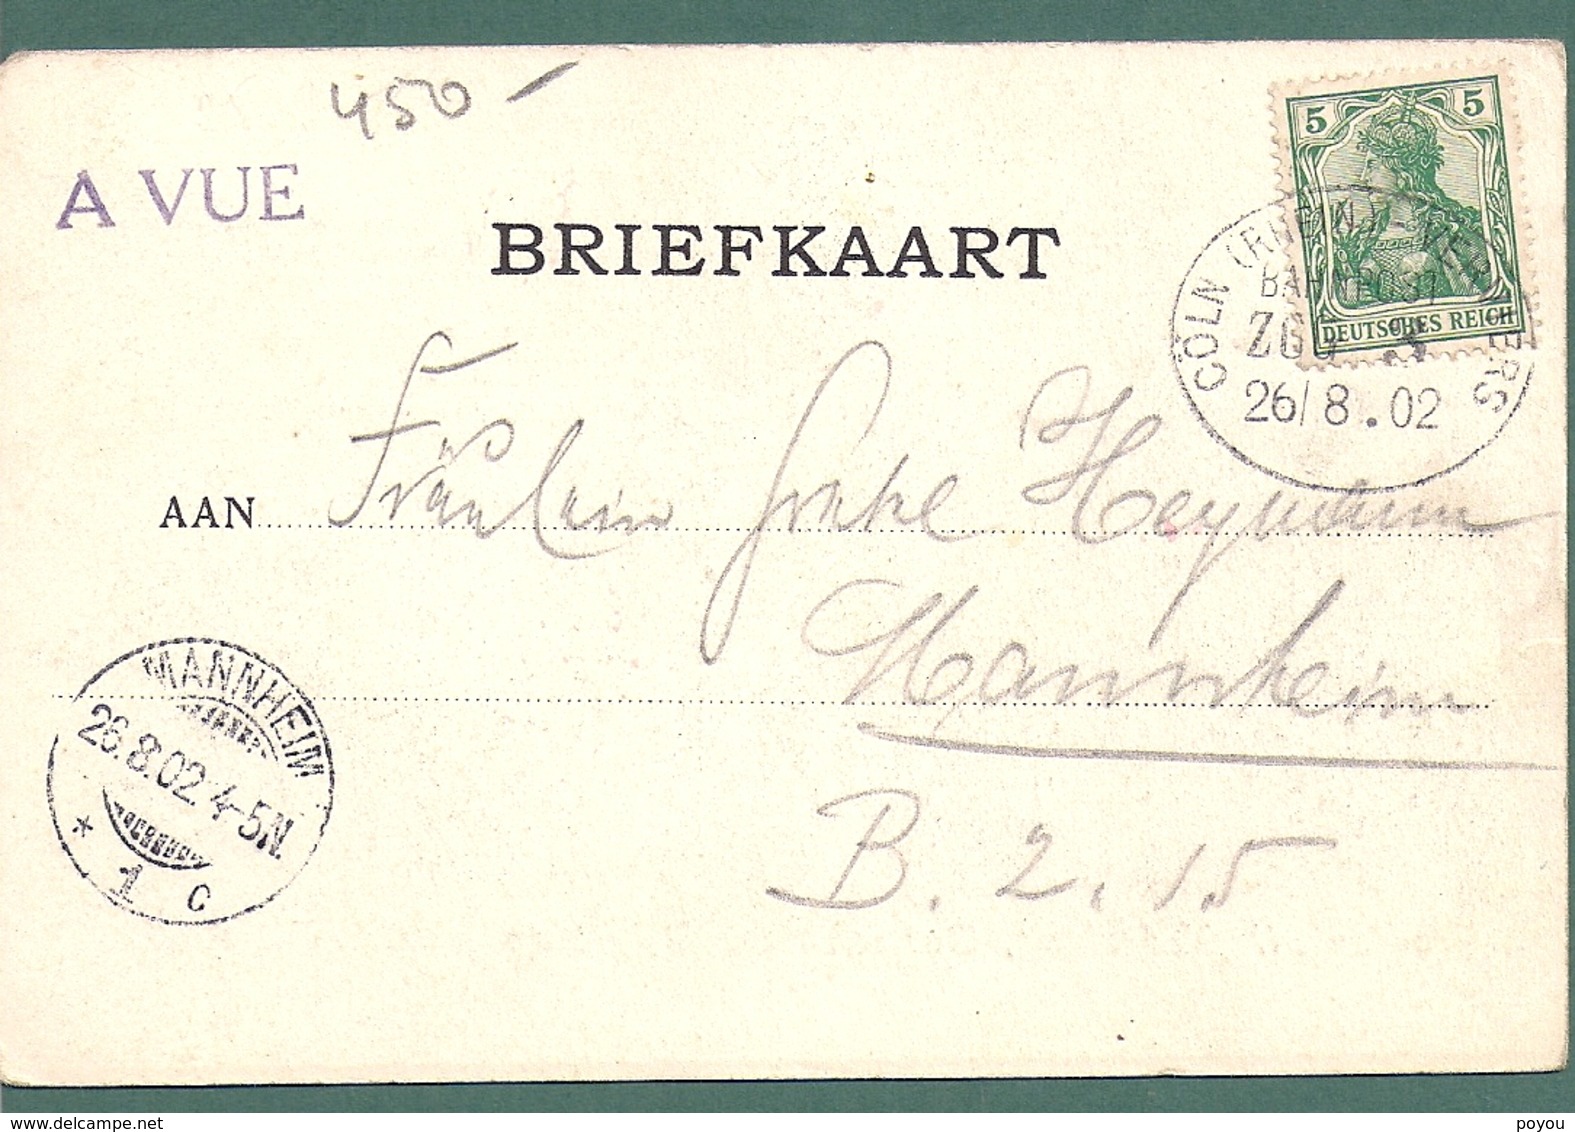 450 -
A VUE
BRIEFKAART
5 5
DEUTSCHES REICH
CÖLN (RH
BAHNPOST
ZG
26/8.02
AAN Fräulein
Mannheim
B. 2. 15
MANNHEIM
26.8.02. 4-5N.
* 1 c
delcampe.net
poyou